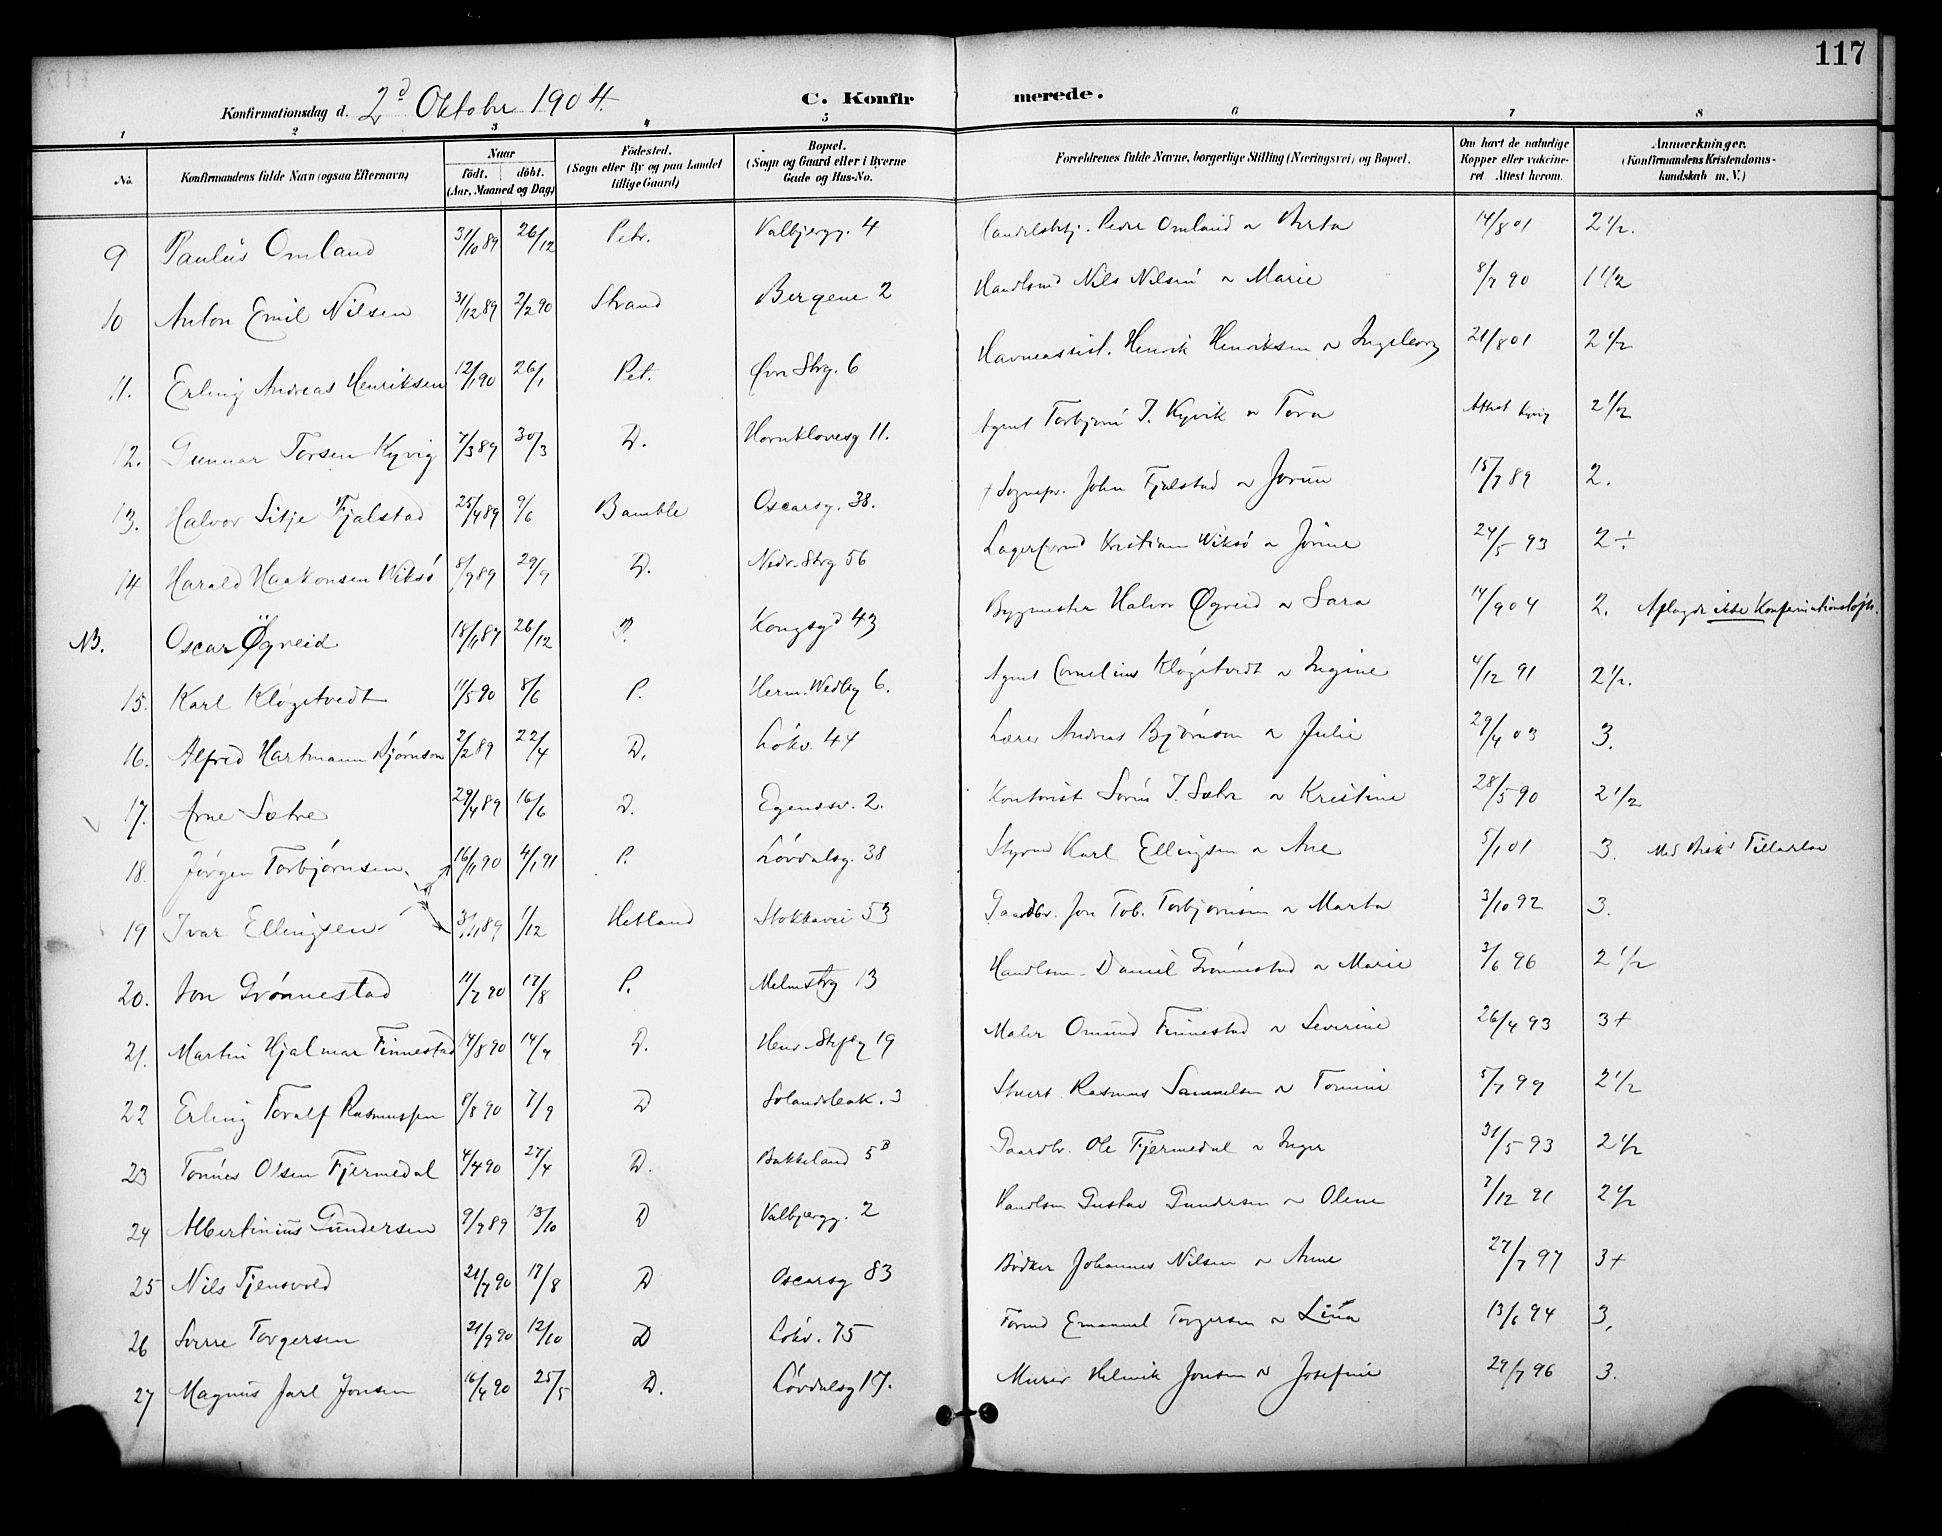 117
Konfirmationsdag d. 2d Oktobr 1904. C. Konfir merede.
1 2 3 4 5 6 7 8
No. Konfirmandens fulde Navn (ogsaa Efternavn) Naar født. døbt. (Aar, Maaned og Dag) Fødested. (Sogn eller By og paa Landet tillige Gaard) Bopæl. (Sogn og Gaard eller i Byerne Gade og Hus-No. Forældrenes fulde Navne, borgerlige Stilling (Næringsvei) og Bopæl. Om havt de naturlige Kopper eller vakcineret. Attest herom. Anmærkninger. (Konfirmandens Kristendomskundskab m. V.)
9 Paulus Omland 31/10 89 26/12 Petr. Valbjergg. 4 Peder Omland o Berta 14/8 01 2 1/2.
10 Anton Emil Nilsen 31/12 89 2/2 90 Strand Bergene 2 Handlsmd Nils Nilsen o Marie 8/7 90 1 1/2
11. Erling Andreas Henriksen 12/1 90 26/1 Pet. Øvr Strg. 6 Havneassist. Henrik Henriksen o Ingeborg 21/8 01 2 1/2
12. Gunnar Torsen Kyvig 7/3 89 30/3 D. Hornklovesg 11. Agent Torbjørn T. Kyvik o Tora Attest 2 1/2
13. Halvor Sitje Fjalstad 25/4 89 9/6 Bamble Oscarsg. 38. + Sognepr. John Fjalstad o Jorun 15/7 89 2.
14 Harald Haakonsen Wiksø 8/9 89 29/9 D. Nedr. Strg 56 Lagerformd Kristian Wiksø o Jorine 24/5 93 2 ÷
NB. Oscar Øgreid 18/11 87 26/12 P. Kongsgd 43 Bygmester Halvor Øgreid o Sara 14/9 04 2. Aflagde ikke Konfirmationsløft.
15. Karl Kløgetvedt 11/5 90 8/6 P. Herm. Wedbg 6. Agent Cornelius Kløgetvedt o Ingine 4/12 91 2 1/2.
16. Alfred Hartmann Bjørnson 2/2 89 22/4 D. Løkv. 44 Lærer Andreas Bjørnson o Julie 29/4 03 3.
17. Arne Sætre 29/4 89 16/6 D. Egenesv. 2. Kontorist Sørin T. Sætre o Kristine 28/5 90 2 1/2
18. Jørgen Torbjørnsen. 16/11 90 4/1 91 P. Løvdalsg. 38 Styrmd Karl Ellingsen o Ane 5/1 01 3. Med Bisk's Tilladelse
19 Ivar Ellingsen 3/11 89 1/12 Hetland Stokkavei 53 Gaardbr. Jon Tob. Torbjørnsen o Marta 3/10 92 3.
20. Jon Grønnestad 11/7 90 17/8 P. Melmstrg 13 Handlsm. Daniel Grønnestad o Marie 3/6 96 2 1/2
21. Martin Hjalmar Finnestad 14/8 90 14/9 D. 19 Maler Omund Finnestad o Severine 26/4 93 3+
22 Erling Toralf Rasmussen 8/8 90 7/9 D Solandsbak. 3 Stuert Rasmus Samuelsen o Tomine 5/7 99 2 1/2
23 Tønnes Olsen Fjermedal 4/4 90 27/4 D. Bakkeland 5 B Gaardbr. Ole Fjermedal o Inger 31/5 93 2 1/2
24 Albertinius Gundersen 9/9 89 13/10 D Valbjergg. 2 Handlsm Gustav Gundersen o Olene 7/12 91 2 1/2
25 Nils Tjensvold 21/7 90 17/8 D Oscarsg 83 Bødker Johannes Nilsen o Anne 27/7 97 3+
26 Sverre Torgersen 21/9 90 12/10 D Løkv. 75 Formd Emanuel Torgersen o Lina 13/6 94 3,
27 Magnus Jarl Jonsen 16/4 90 25/5 D. Løvdalsg 17. Murer Helmik Jonsen o Josefine 29/7 96 3.